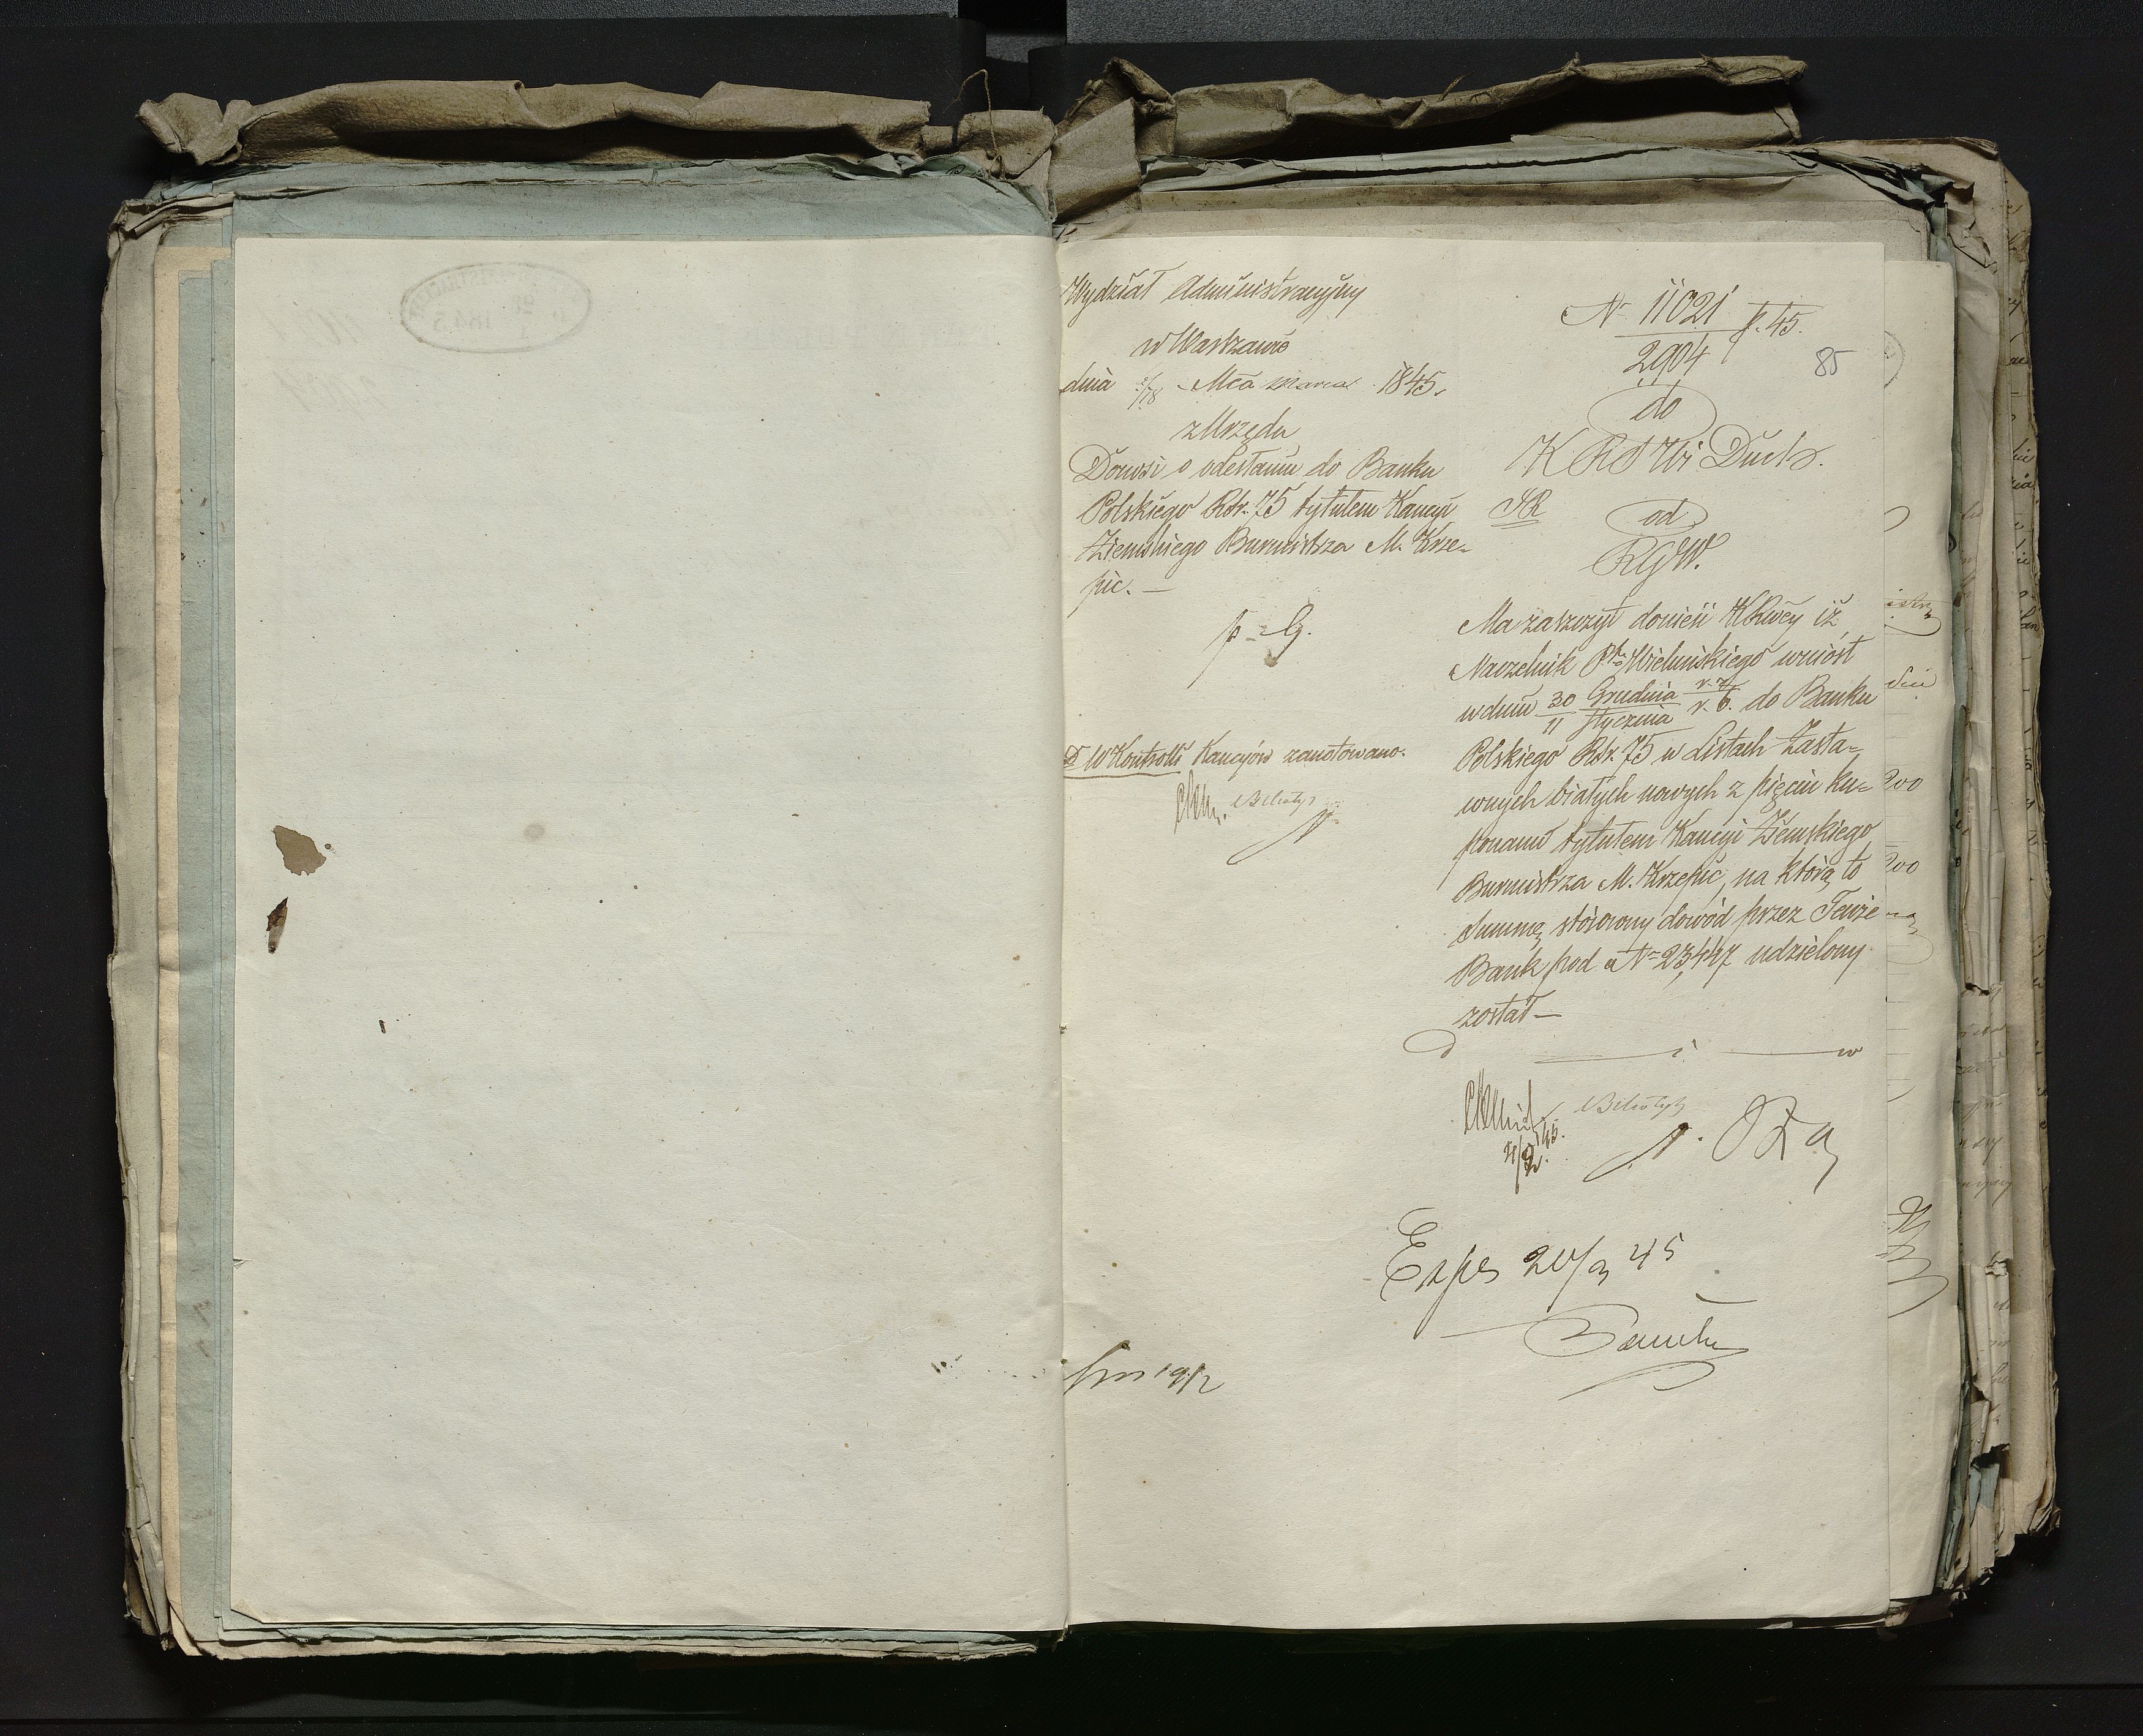 Wydział Administracyjny
w Warszawie
dnia 6/18 Mca Marca 1845.
z Urzędu
Donosi o odesłaniu do Banku
Polskiego Rsr. 75 tytułem Kaucyi
Ziemskiego Burmistrza M. Krze-
pic. —
p. G.
W Kontrolli Kaucyów zanotowano.
N 11021 / 2904 p. 45.
85
do
K R S W i Duch.
SR
od
RGW.
Ma zaszczyt donieść KRwéy iż
Naczelnik Ptu Wieluńskiego wniósł
w dniu 30 Grudnia / 11 Stycznia r. z. / r. b. do Banku
Polskiego Rsr. 75 w Listach Zasta=
wnych białych nowych z pięciu ku=
ponami tytułem Kaucyi Ziemskiego
Burmistrza M. Krzepic, na którą to
Summę stósowny dowód przez Tenże
Bank pod N 23,447 udzielony
został —
Exped 20/3 45